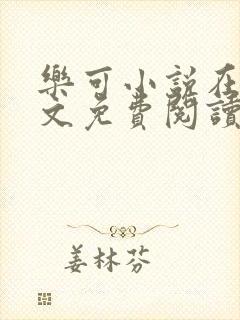 樂可小說在
文免費閱讀
姜林芬